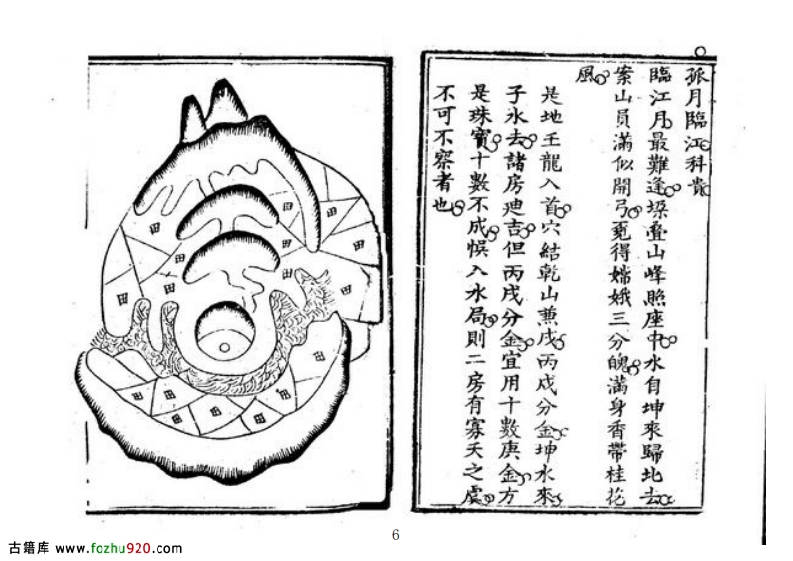 孤月臨江科貴
臨江月最難逢垜叠山峰照座中水自坤來歸北去
案山員滿似開弓覔得嫦娥三分魄滿身香帶桂花
風
是地壬龍入首穴結乾山兼戌丙戌分金坤水來
子水去諸房廸吉但丙戌分金宜用十數庚金方
是珠寶十數不成悞入水局則二房有寡夭之虞
不可不察者也
田
田
田
田
田
田
田
田
田
田
田
田
田
田
6
古籍库 www.fozhu920.com